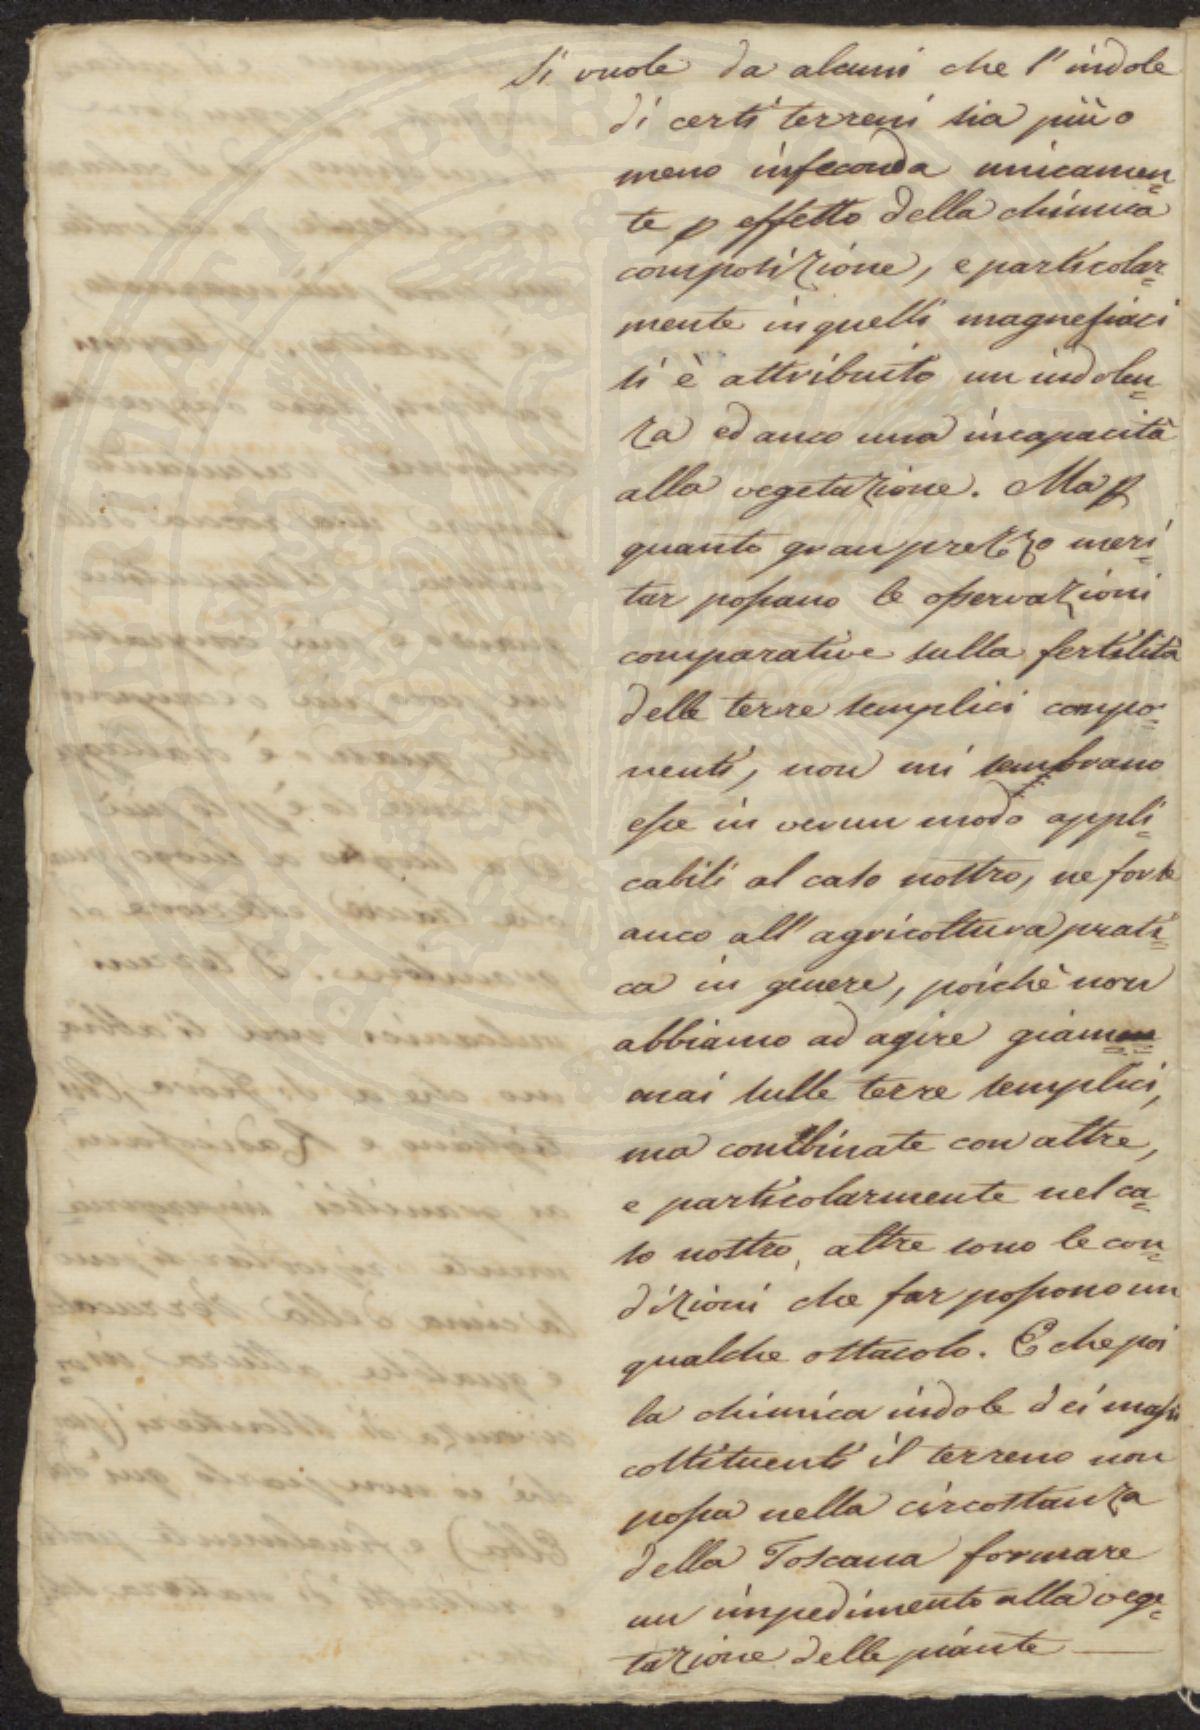 Si vuole da alcuni che l'indole
di certi terreni sia più o
meno infeconda unicamen=
te p effetto della chimica
composizione, e particolar=
mente in quelli magnesiaci
si è attribuito un indolen=
za ed anco una incapacità
alla vegetazione. Ma p
quanto gran prezzo meri=
tar possano le osservazioni
comparative sulla fertilità
delle terre semplici compo=
nenti, non mi sembrano
esse in verun modo appli=
cabili al caso nostro, ne forse
anco all'agricoltura prati=
ca in genere, poichè non
abbiamo ad agire giam
mai sulle terre semplici,
ma combinate con altre,
e particolarmente nel ca=
so nostro, altre sono le con=
dizioni che far possono un
qualche ostacolo. E che poi
la chimica indole dei massi
costituenti il terreno non
possa nella circostanza
della Toscana formare
un impedimento alla vege=
tazione delle piante —